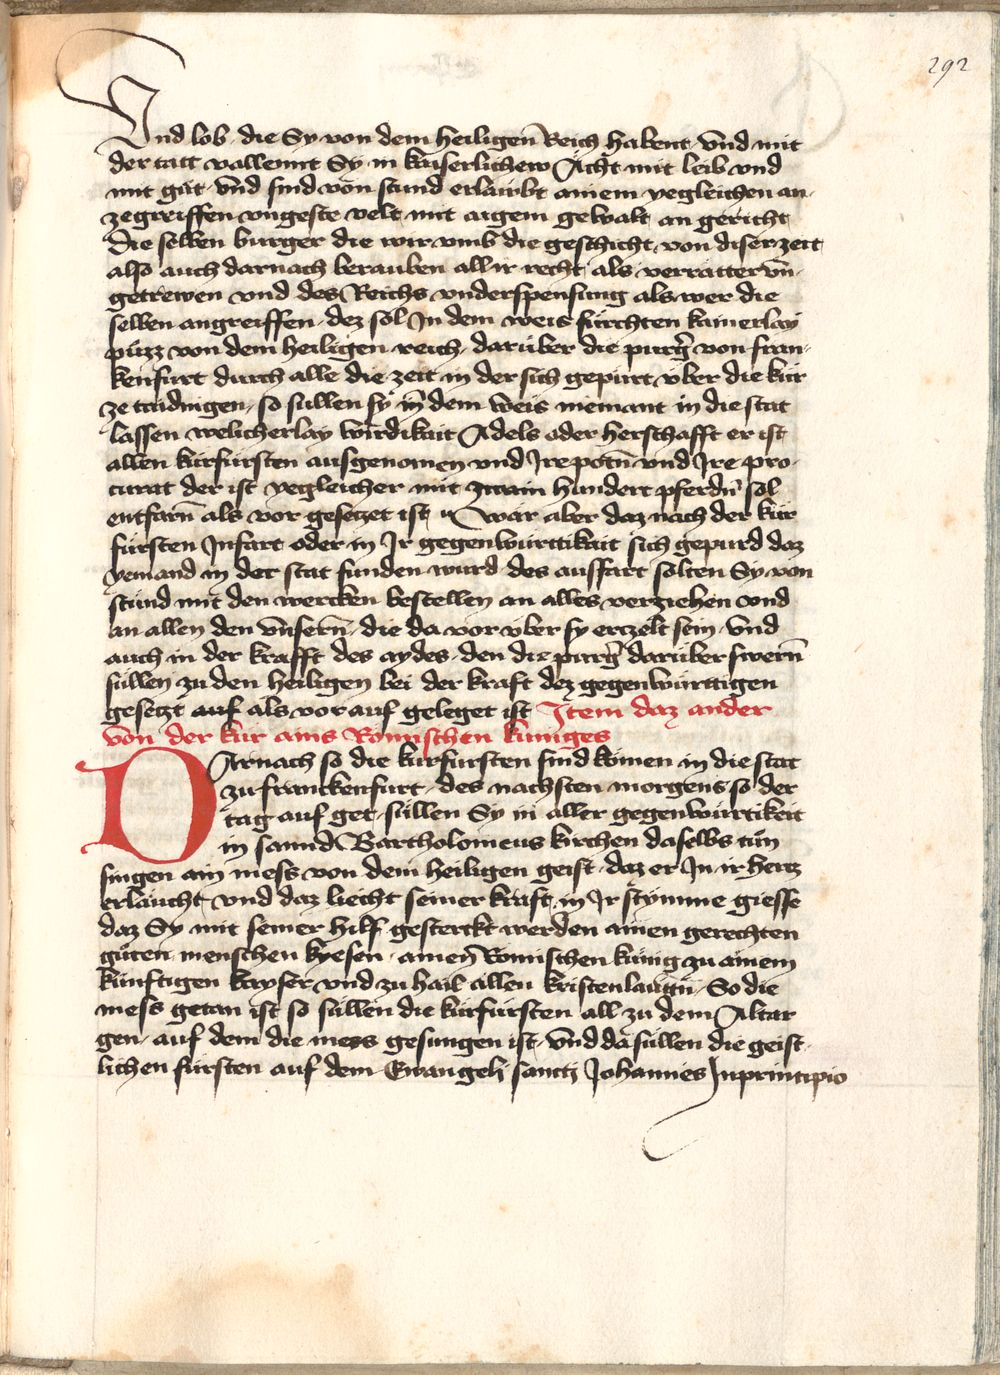 292
Vnd lob die Sy von dem heiligen Reich habent vnd mit
der tatt vallennt Sy in kaiserlichew Ácht mit leib vnd
mit gůt vnd sind von stund erlawbt ainem yegleichen an
zegreiffen vngeste velt mit aigem gewalt an gericht
Die selben burger die wir vmb die geschicht von diser zeit
also auch darnach berauben all ir recht als verrátter vn̄
getrewen vnd des Reichs vnderspensung als wer die
selben angreiffen dez sol In dem weis fürchten kainerlay
půzz von dem heiligen reich darüber die purg̓ von fran
kenfurt durch alle die zeit in der sich gepürt vber die kúr
ze taidingen so süllen sy in dem weis niemant in die stat
lassen welicherlay wirdikait Adels oder herschafft er ist
allen kúrfúrsten ausgenomen vnd Ire potn̄ vnd Ire pro
curat der ist yegleicher mit zwain hundert pferdn̄ sol
entfarn̄ als vor gesetzet ist Wár aber daz nach der kúr
fürsten Infart oder in Ir gegenwúrttikait sich gepurd daz
yemand in der stat funden wurd des ausfart solten Sy von
stund mit den wercken bestellen an alles verziehen vnd
an allen den vnsern̄ die da vor vber sy erczelt sein vnd
auch in der krafft des aydes den die purg̓ darüber swern̄
süllen zu den heiligen bei der kraft dez gegenwúrttigen
gesetzt auf als vor auf geleget ist Item daz ander
von der kúr ains Römischen kuniges
DArnach so die kurfursten sind kömen in die stat
zu franckenfurt des nachsten morgens so der
tag auf get süllen Sy in aller gegenwúrtikeit
in sannd Bartholomeus kirchen daselbs tůn
singen ain mess von dem heiligen geist daz er In ir hercz
erlaucht vnd daz liecht seiner kraft in Ir stymme giesse
daz Sy mit seiner hilf gesterckt werden ainen gerechten
gůten menschen kyesen ainen̄ Römischen kúnig zu ainem
kúnftigen kayser vnd zu hail allen kristenlaugn̄ So die
mess getan ist so süllen die kúrfúrsten all zu dem Altar
gen auf dem die mess gesungen ist vnd da sullen die geist
lichen fürsten auf dem Ewangelj sanctj Johannes Inprincipio